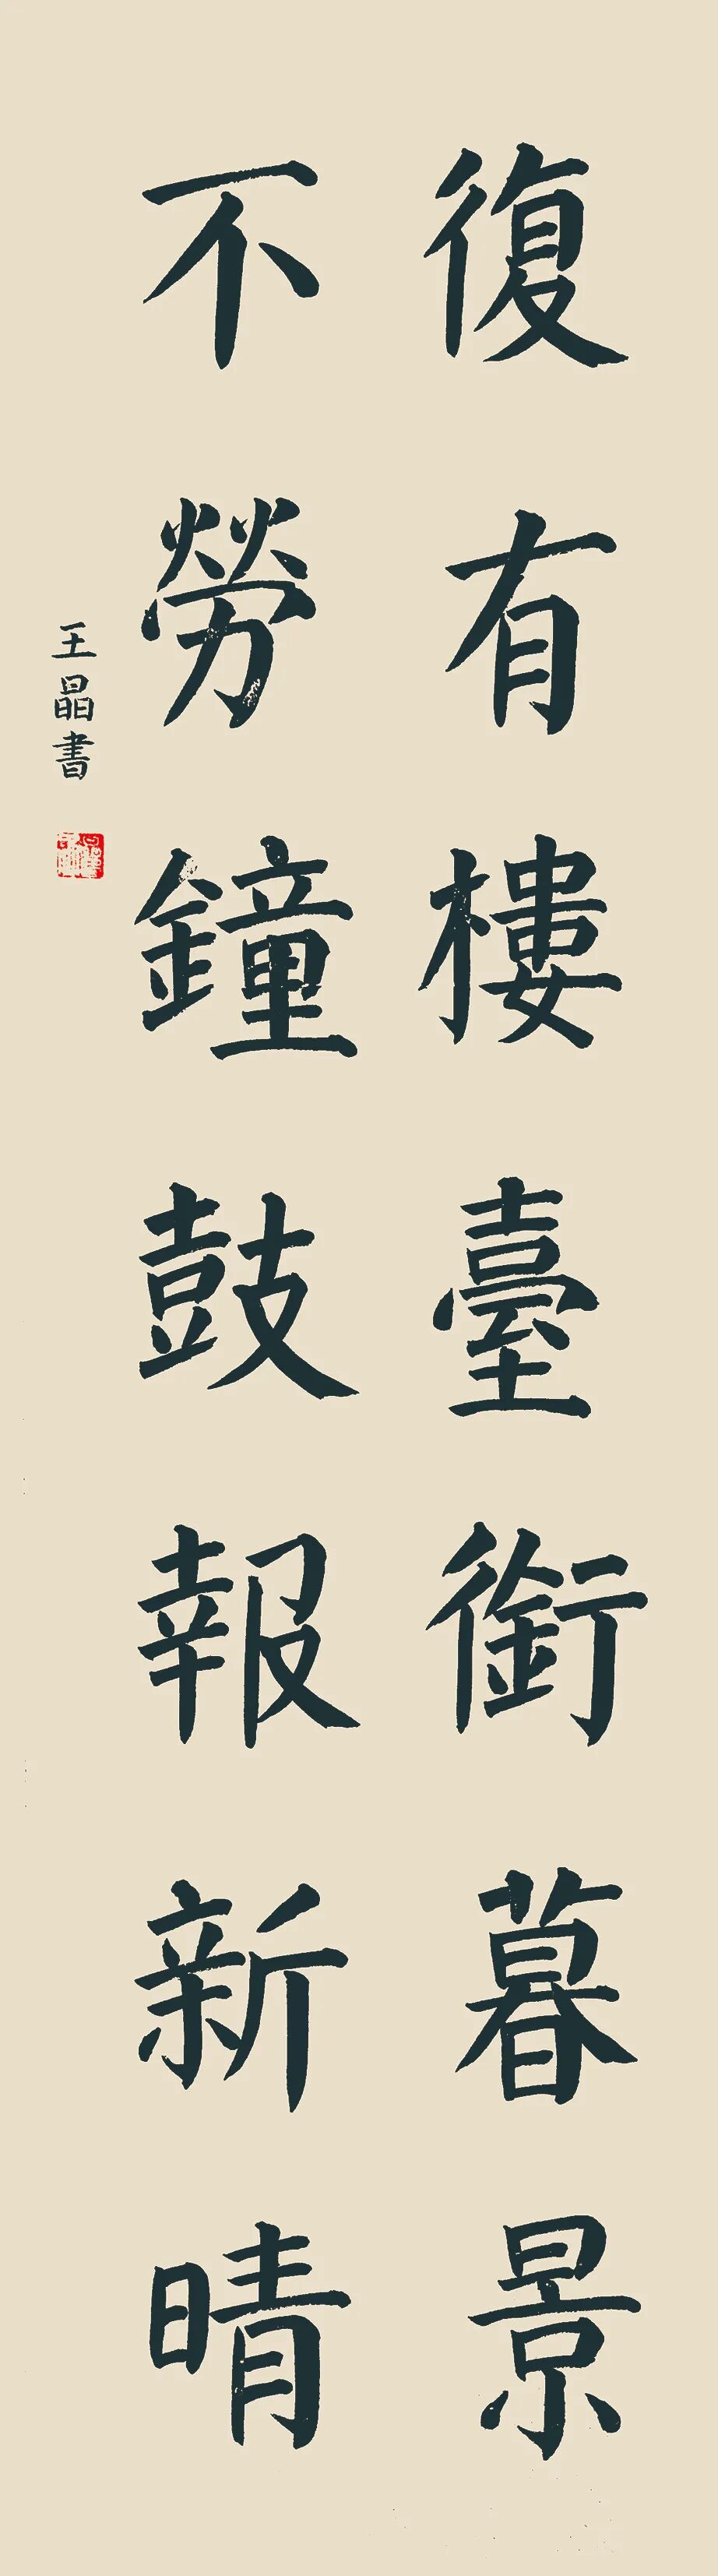 復有樓臺銜暮景
不勞鐘鼓報新晴
王晶書